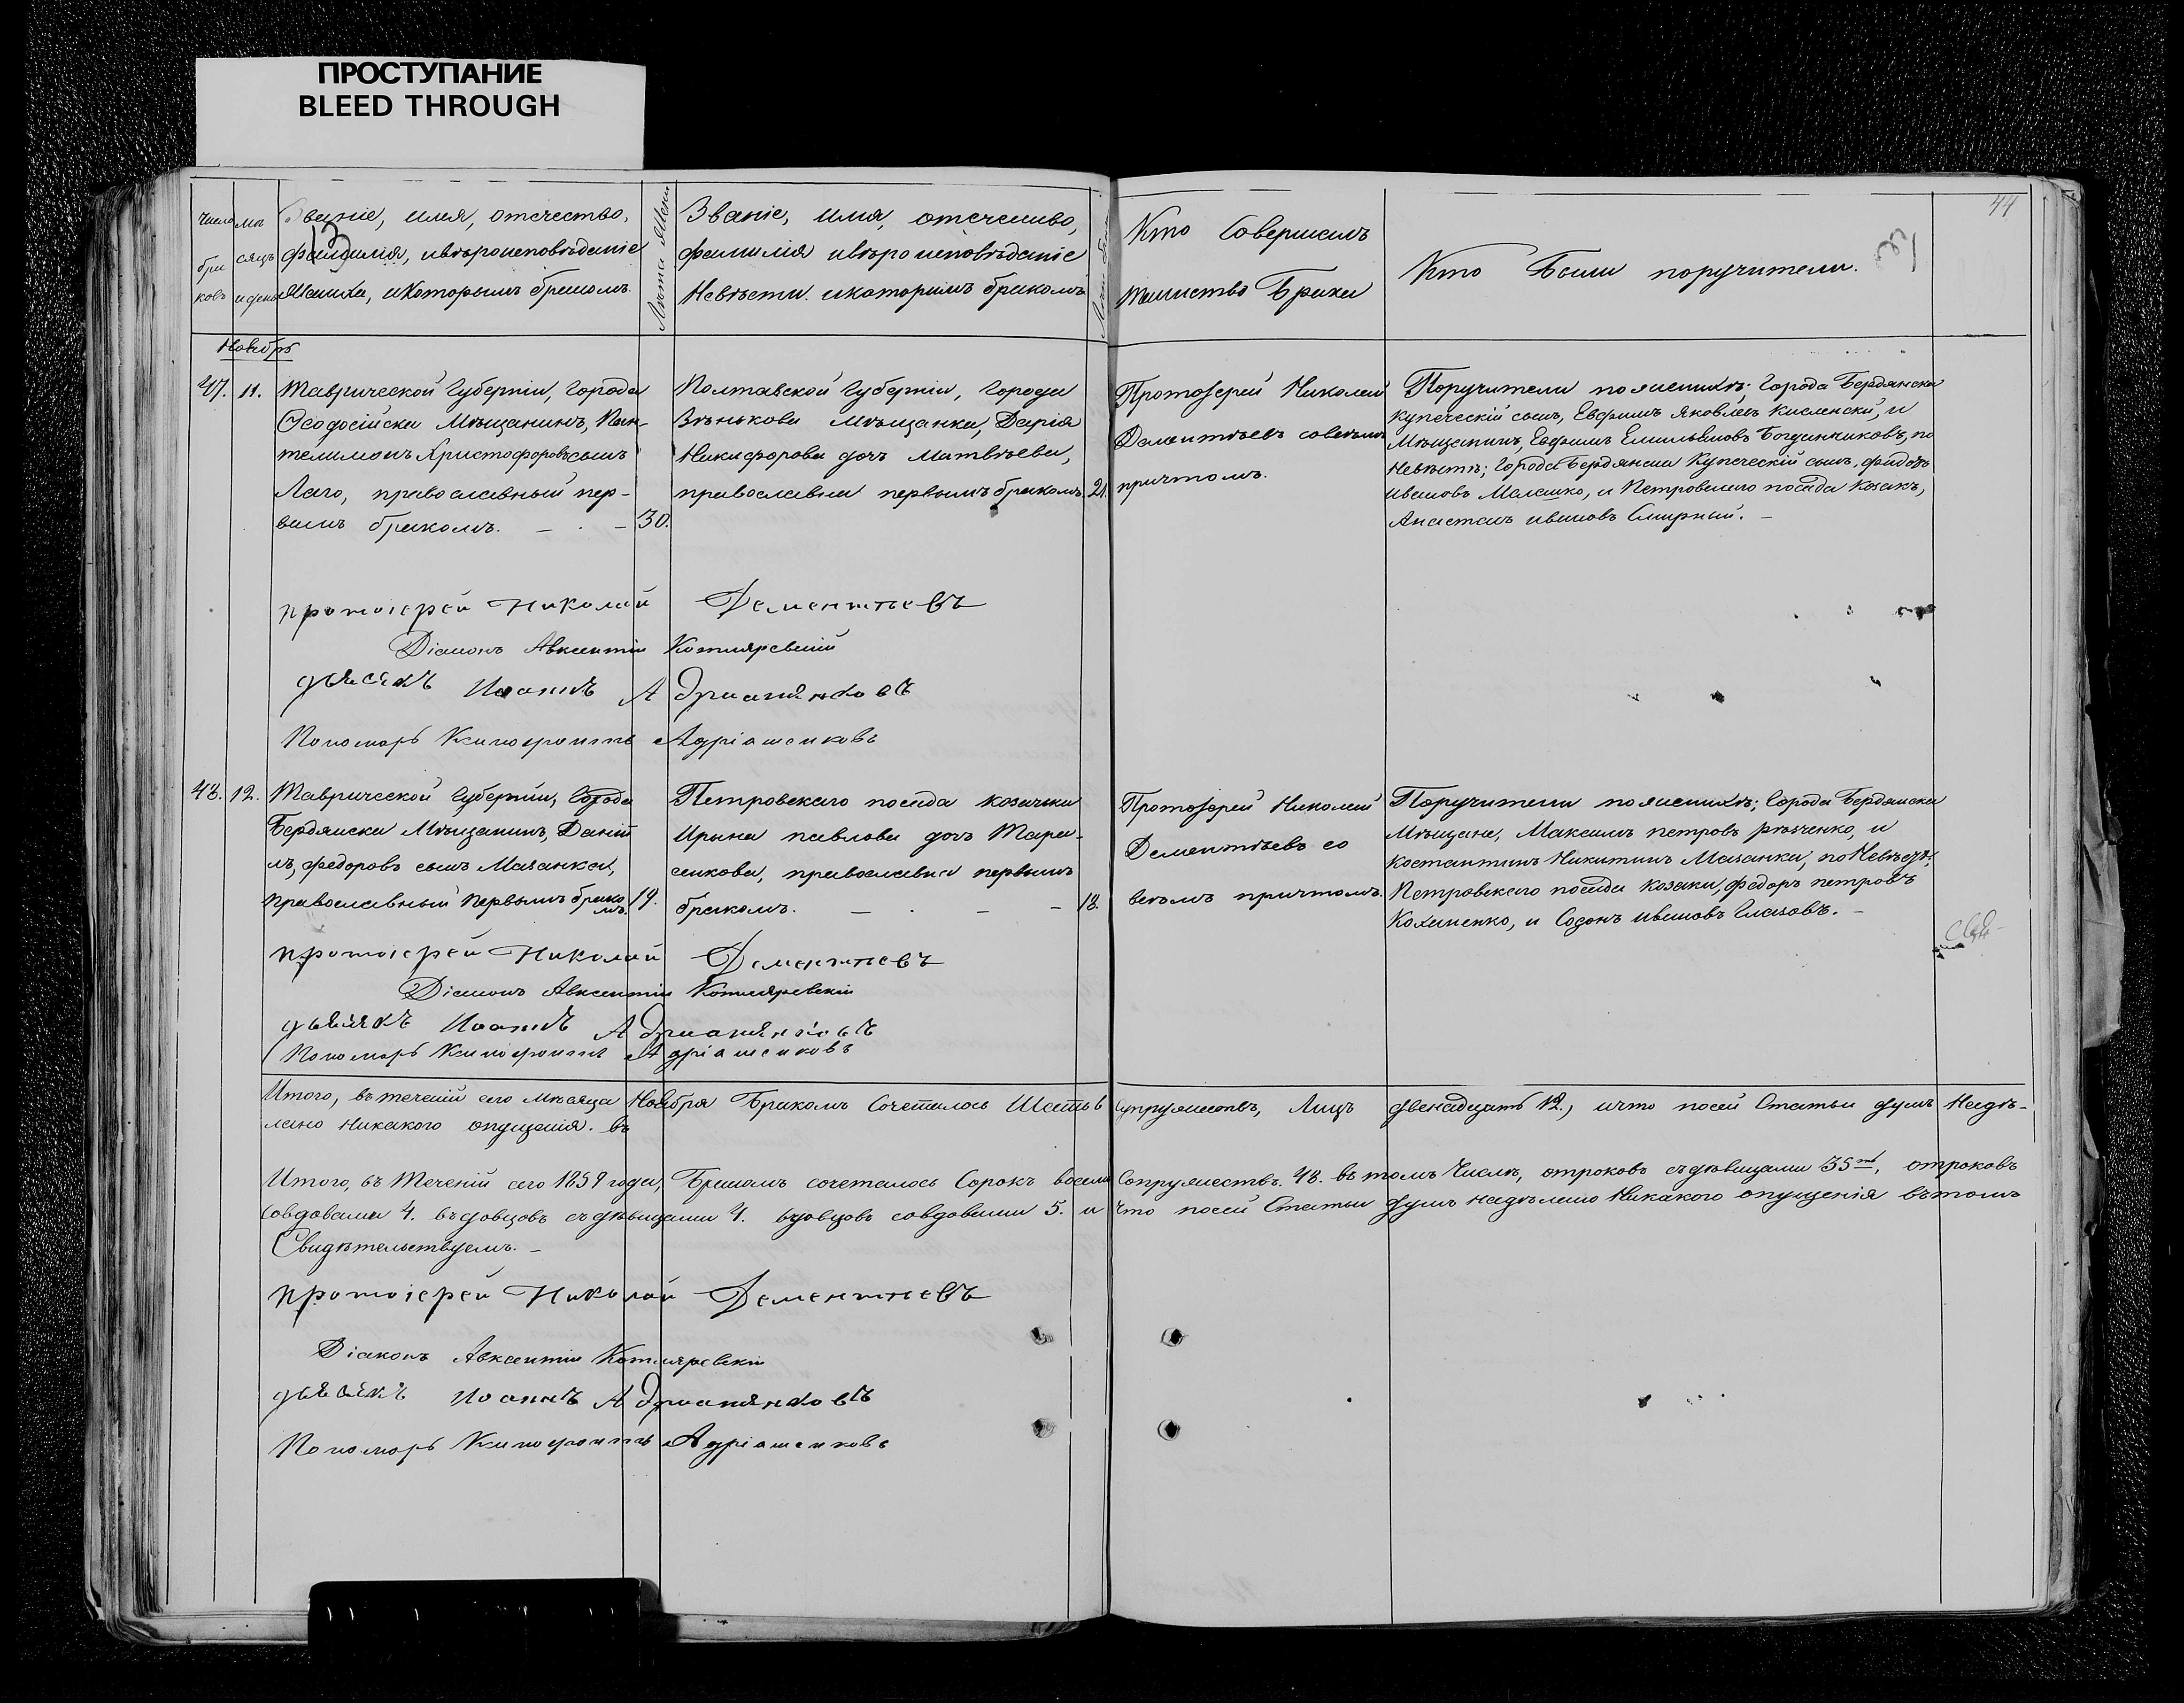 ПРОСТУПАНИЕ
BLEED THROUGH
44
Число браковъ
Мѣсяцъ и день
Званіе, имя, отечество,
фамилія, ивѣроисповѣданіе
Жениха, икоторымъ бракомъ.
Лѣта Жени
Званіе, имя, отечество,
фамилія ивѣроисповѣданіе
Невѣсты. икоторимъ бракомъ
Кто Совершалъ
таинство Брака
Кто Были поручители.
Ноябрь
47. 11.
Таврической Губерніи, города
Ѳеодосійска Мѣщанинъ, Пан-
телимонъ Христофоровъ сынъ
Лаго, православный пер-
вымъ бракомъ. — . — 30.
Полтавской Губерніи, города
Зѣнькова мѣщанка, Дарія
Никифорова дочь Матвѣева,
православна первымъ бракомъ 21.
Протоіерей Николай
Дементѣевъ совсѣмъ
причтомъ.
Поручители поженихѣ; города Бердянска
купеческій сынъ, Евфимъ Яковлевъ Кисленскій, и
Мѣщанинъ, Евфимъ Емильяновъ Богданчиковъ, по
Невѣстѣ; города Бердянска Купеческій сынъ, Фидотъ
Ивановъ Малашко, и Петровскаго посада Козакъ,
Анастасъ Ивановъ Смирный. —
протоіерей Николай Дементьевъ
Діаконъ Авксентій Котляревскій
дьячекъ Иоаннъ Адриашенковъ
Пономарь Ксинофонтъ Адріашенковъ
48. 12.
Таврической Губерніи, Города
Бердянска Мѣщанинъ, Даніи
лъ, Федоровъ сынъ Мазанка,
православный первымъ брако
мъ. 19.
Петровскаго посада козачка
Ирина павлова дочь Тара-
сенкова, православна первымъ
бракомъ. — . — — 18.
Протоіерей Николай
Дементѣевъ со
всѣмъ причтомъ.
Поручители поженихѣ; Города Бердянска
Мѣщане, Максимъ петровъ рябченко, и
Костантинъ Никитинъ Мазанка, по Невѣстѣ;
Петровскаго посада козаки, Федоръ петровъ
Кохненко, и Созонъ Ивановъ Глазовъ. —
протоіерей Николай Дементьевъ
Діаконъ Авксентій Котляревскій
дьячекъ Иоаннъ Адриашенковъ
Пономарь Ксинофонтъ Адріашенковъ
Итого, въ теченій сего Мѣсяца Ноября Бракомъ Сочеталось Шесть 6 супружествъ, Лицъ двенадцать 12., ичто посей Статьи думъ Надѣ-
лано Никакого опущенія. въ
Итого, въ Теченій сего 1859 года, Бракомъ сочеталось Сорокъ восемь Сопружествъ. 48. въ томъ Числѣ, отроковъ съдѣвицами 35ть, отроковъ
Совдовами 4. въдовцовъ съдѣвицами 4. вдовцовъ совдовами 5. и что посей Статьи думъ надѣлано Никакого опущенія вътомъ
Свидѣтельствуемъ. —
протоіерей Николай Дементьевъ
Діаконъ Авксентій Котляревскій
дьячекъ Иоаннъ Адриашенковъ
Пономарь Ксинофонтъ Адріашенковъ